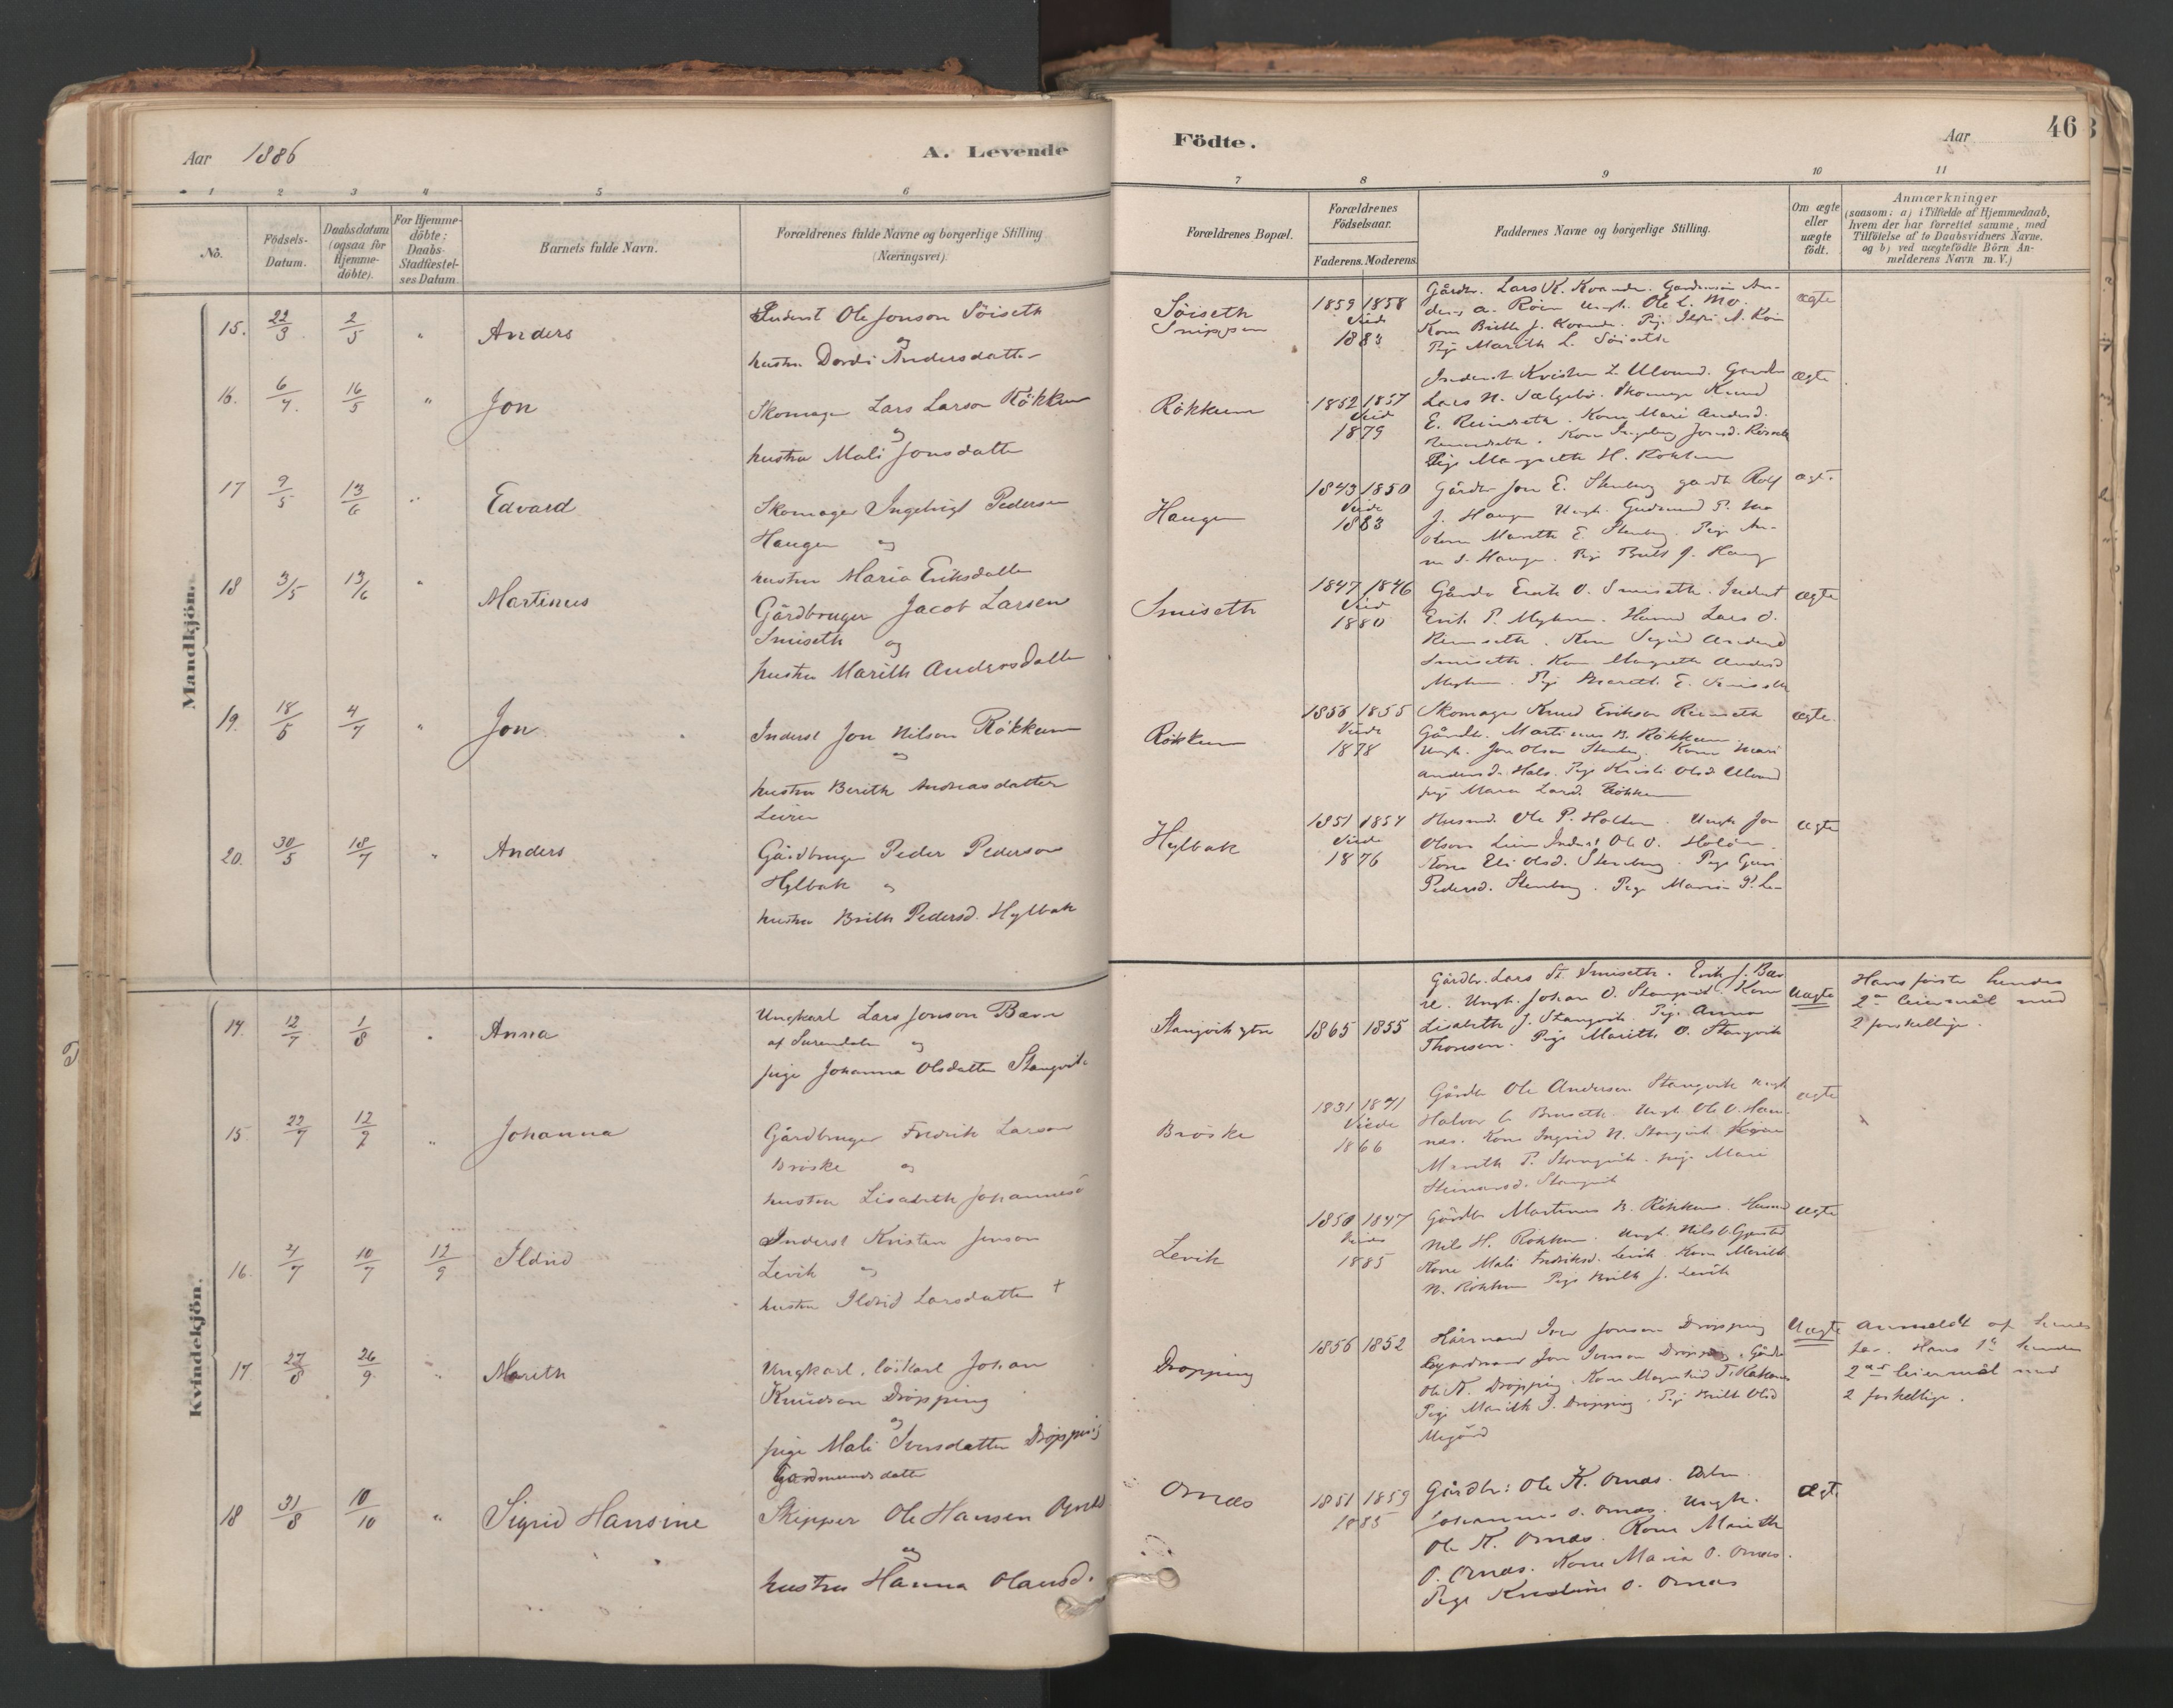 Aar 1886
A. Levende
Födte.
Aar
46
1 2 3 4 5 6
7 8 9 10 11
No.
Födsels-
Datum.
Daabsdatum
(ogsaa for
Hjemme-
döbte).
For Hjemme-
döbte;
Daabs-
Stadfæstel-
ses Datum
Barnets fulde Navn.
Forældrenes fulde Navne og borgerlige Stilling
(Næringsvei).
Forældrenes Bopæl.
Forældrenes
Födselsaar.
Faderens. Moderens.
Faddernes Navne og borgerlige Stilling.
Om ægte
eller
uægte
födt.
Anmærkninger
(saasom: a) i Tilfælde af Hjemmedaab,
hvem der har forrettet samme, med
Tilföielse af to Daabsvidners Navne,
og b) ved uægtefödte Börn An-
melderens Navn m. V.)
Mandkjön.
15. 22/3 2/5 " Anders
Inderst Ole Jonson Söiseth
og
hustru Dordi Andersdatter
Söiseth
Snippen
1859 1858
Viede
1883
Gårdbr. Lars K. Kvande.
Ungk. Ole L. Mo.
Pige Marith L. Söiseth
ægte
16. 6/4. 16/5 " Jon
Skomager Lars Larson Rökkum
og
hustru Mali Jonsdatter
Rökkum
1852 1857
Viede
1879
Inderst Kristen L. Ulvund.
Skomager Knud
E. Reinseth. Kone Mari Andersd.
Pige Margrethe H. Rökkum
ægte
17 9/5 13/6 " Edvard
Skomager Ingebrigt Pederson
Haugen og
hustru Maria Eriksdatter
Haugen
1843 1850
Viede
1883
Gårdbr Jon E. Stenberg
J. Haugen Ungk. Gudmund P. Mo
Marith E. Stenberg. Pige
ægt.
18 3/5 13/6 " Martinus
Gårdbruger Jacob Larsen
Smiseth og
hustru Marith Andersdatter
Smiseth
1847 1846
Viede
1880
Gårdbr Erik O. Smiseth. Inderst
Erik P. Myhren. Husmd Lars O.
Reinseth. Kone Sigrid Andersd
Smiseth. Kone Margrethe Andersd
Myhren. Pige Marith E. Smiseth
ægte
19. 18/5 4/7 " Jon
Inderst Jon Nilson Rökkum
og
hustru Berith Andreasdatter
Leiren
Rökkum
1856 1855
Viede
1878
Skomager Knud Erikson Reinseth
Gårdbr. Martinus B. Rökkum
Ungk. Jon Olson Stenberg. Kone Mari
Andersd. Hals. Pige Kristi Olsd. Ulvund
pige Maria Larsd. Rökkum
ægte.
20. 30/5 18/7 " Anders
Gårdbruger Peder Pederson
Hylbak og
hustru Brith Pedersd. Hylbak
Hylbak
1851 1854
Viede
1876
Husmd. Ole P. Holten. Ungk Jon
Olson Inderst Ole O.
Kone Eli Olsd. Stenberg. Pige Guri
Pedersd. Stenberg. Pige Maria P.
ægte
Kvindekjön.
14. 12/7 1/8 " Anna
Ungkarl Lars Jonson Bævre
af Surendalen og
pige Johanna Olsdatter Stangvik
Stangvik ytre
1865 1855
Gårdbr. Lars St. Smiseth. Erik J. Bæv-
re. Ungk. Johan O. Stangvik. Kone
Lisabeth J. Stangvik. Pige Anna
Thoresen. Pige Marith O. Stangvik
Uægte
Hans første hendes
2det leiermål med
2 forskellige.
15. 22/7 12/9 " Johanna
Gårdbruger Fredrik Larson
Bröske og
hustru Lisabeth Johannesd
Bröske
1831 1841
Viede
1866
Gårdbr Ole Anderson Stangvik Ungk
Halvor Bruseth. Ungk. Ole O. Ham-
nes. Kone Ingrid N. Stangvik
Marith P. Stangvik. pige Mari
Stangvik
ægte
16. 4/7 10/7 12/9 Ildrid
Inderst Kristen Jonson
Levik og
hustru Ildrid Larsdatter +
Levik
1850 1847
Viede
1885
Gårdbr Martinus B. Rökkum. Husmd
Nils H. Rökkum. Ungk. Nils
Kone Mali Fredriksd. Levik. Kone Marith
N. Rökkum Pige Brith J. Levik
ægte
17 27/8 26/9 " Marith
Ungkarl, löskarl Johan
Knudson Dröpping
og
pige Mali Iversdatter Dröpping
Gudmundsdatter
Dröpping
1856 1852
Kårmand Iver Jonson Dröpping
Jon Iverson Dröpping, Gårdbr
Ole K. Dröpping. Kone
Pige Marith I. Dröpping. Pige Brith Olsd
Megård
Uægte
Anmeldt af hendes
far. Hans 1ste hendes
2det leiermål med
2 forskellige.
18 31/8 10/10 " Sigrid Hansine
Skipper Ole Hansen
og
hustru Hanna Olausd.
Ornæs
1851 1859
1885
Gårdbr: Ole K. Ornæs.
Johannes O. Ornæs. Ungk.
Ole K. Ornæs. Kone Marith
O. Ornæs. Kone Maria O. Ornæs.
Pige O. Ornæs
ægt.